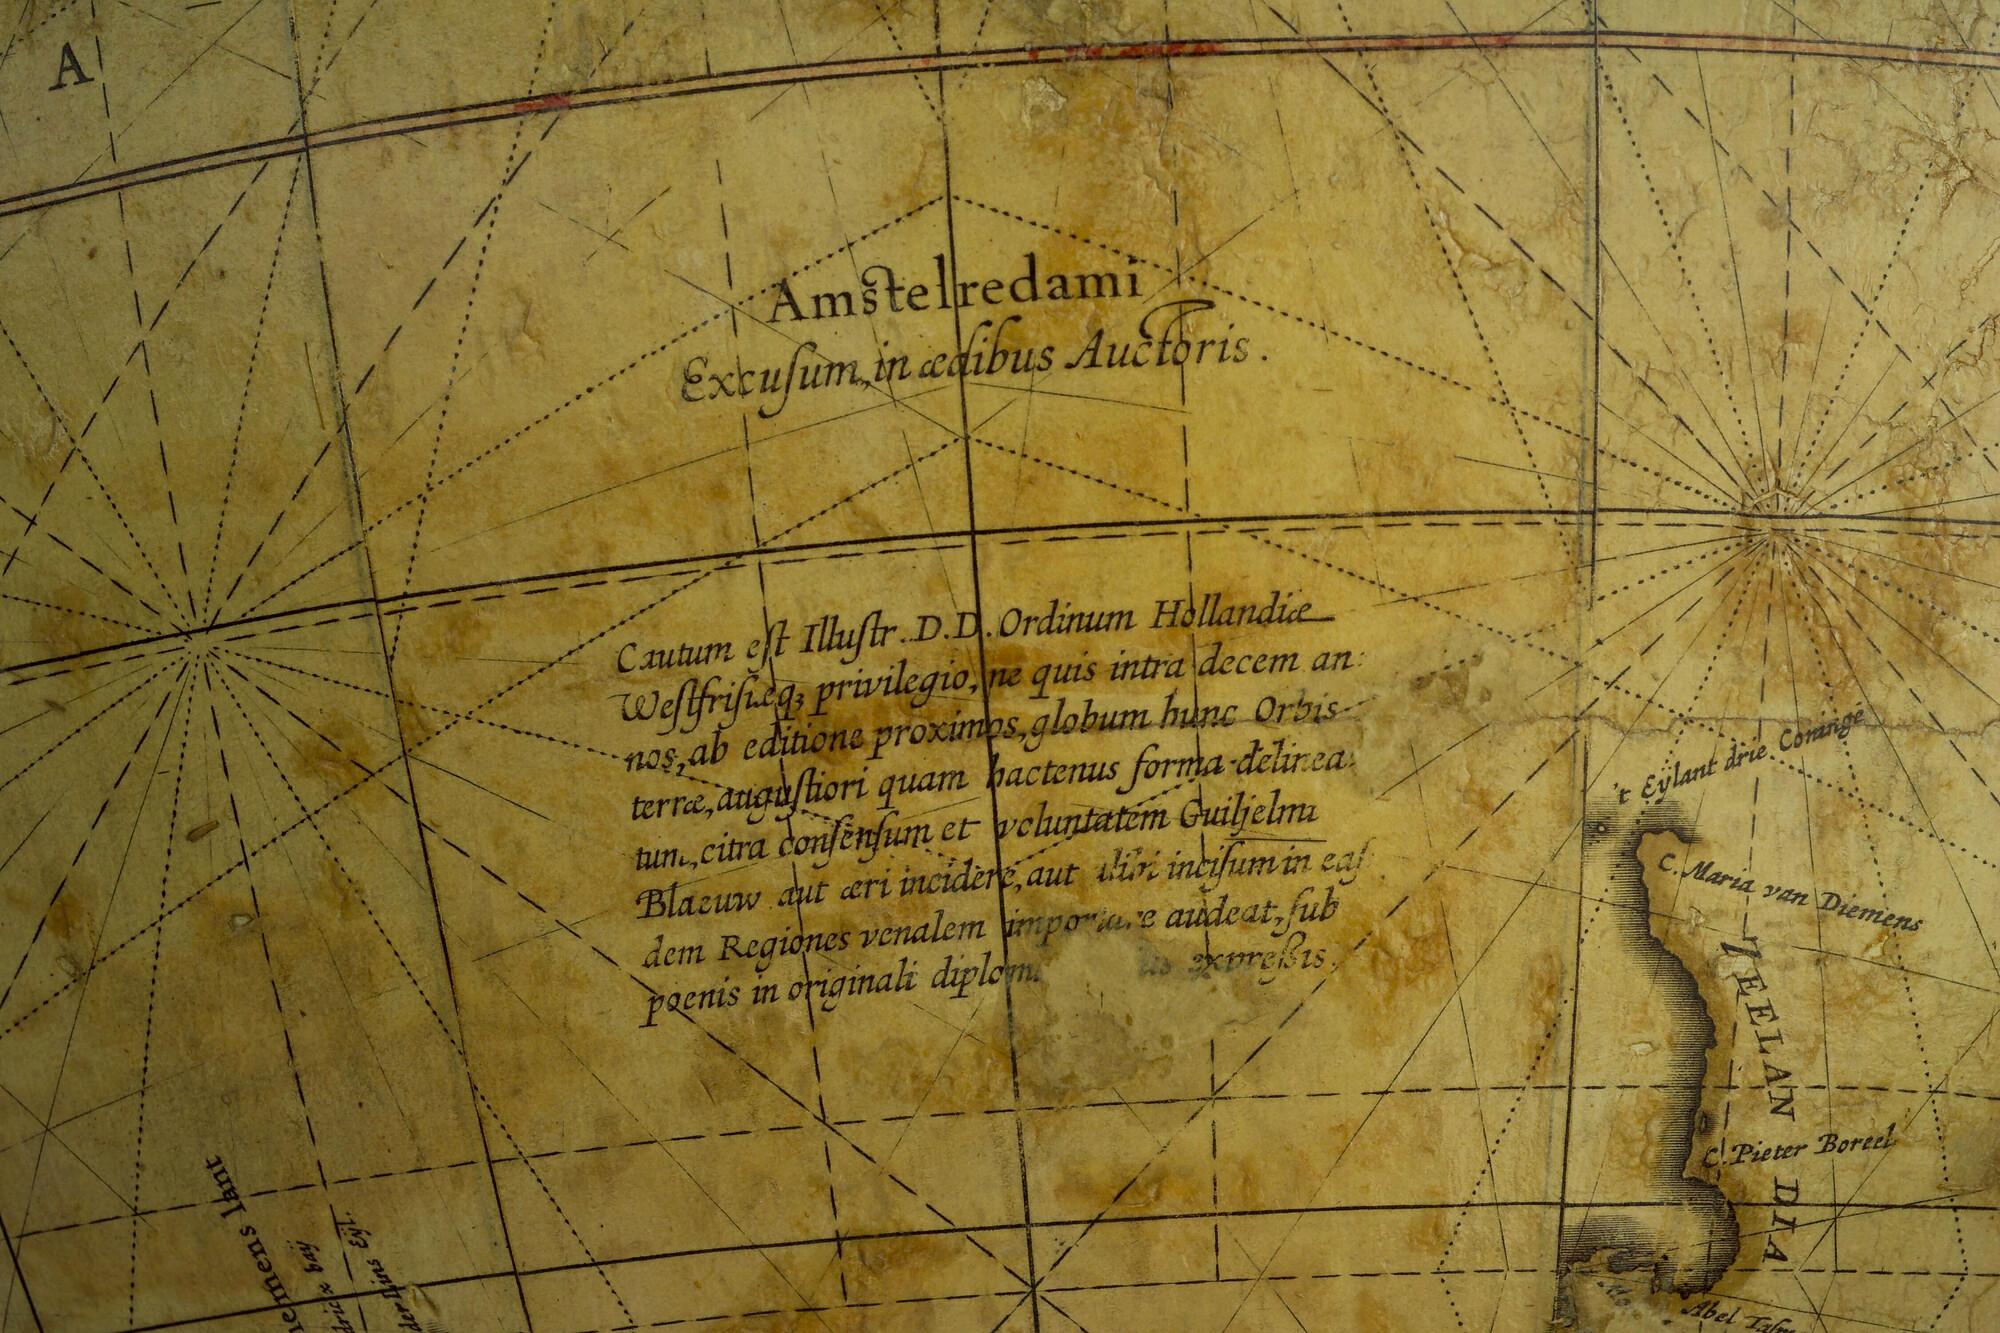 A
Amstelredami
Excuſum, in ædibus Auctoris.
Cautum eſt Illuſtr. D.D. Ordinum Hollandiæ
Weſtfriſiæq; privilegio, ne quis intra decem an:
nos, ab editione proximos, globum hunc Orbis
terræ, auguſtiori quam hactenus forma delinea
tum, citra conſenſum et voluntatem Guiljelmi
Blaeuw aut æri incidere, aut alibi inciſum in eaſ
dem Regiones venalem importare audeat, ſub
poenis in originali expreßis.
't Eylant drie Coninge
C. Maria van Diemens
ZEELAN
DIA
C. Pieter Boreel
Abel
lant
baij
Eijl.